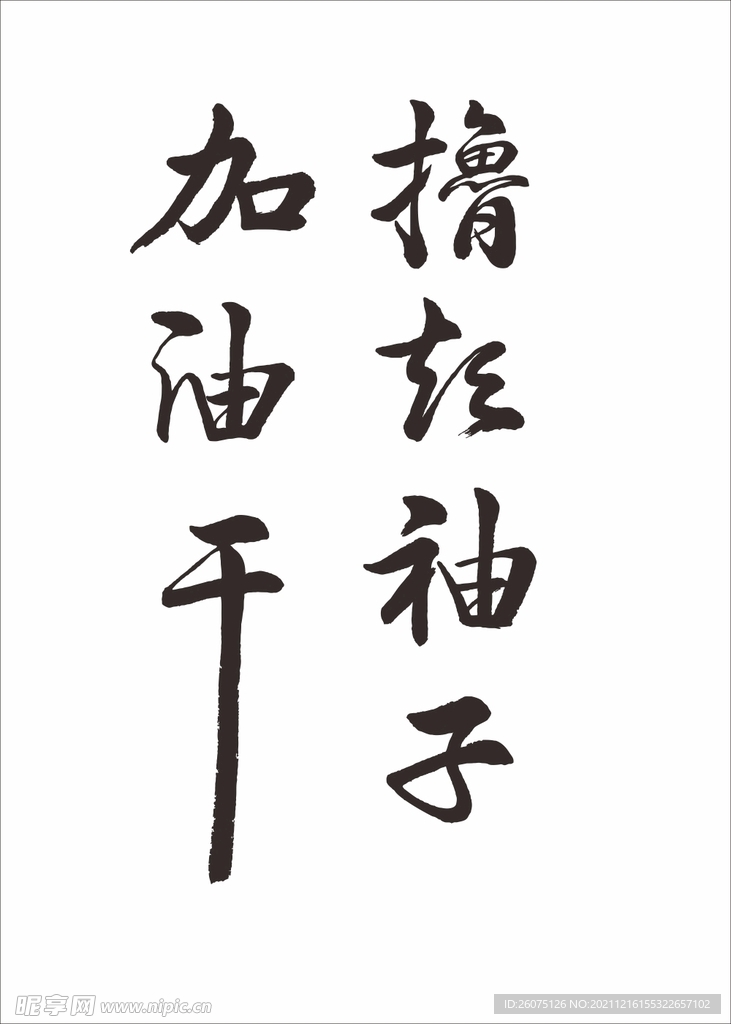 撸起袖子
加油干
昵享网 www.nipic.cn
ID:26075126 NO:20211216155322657102